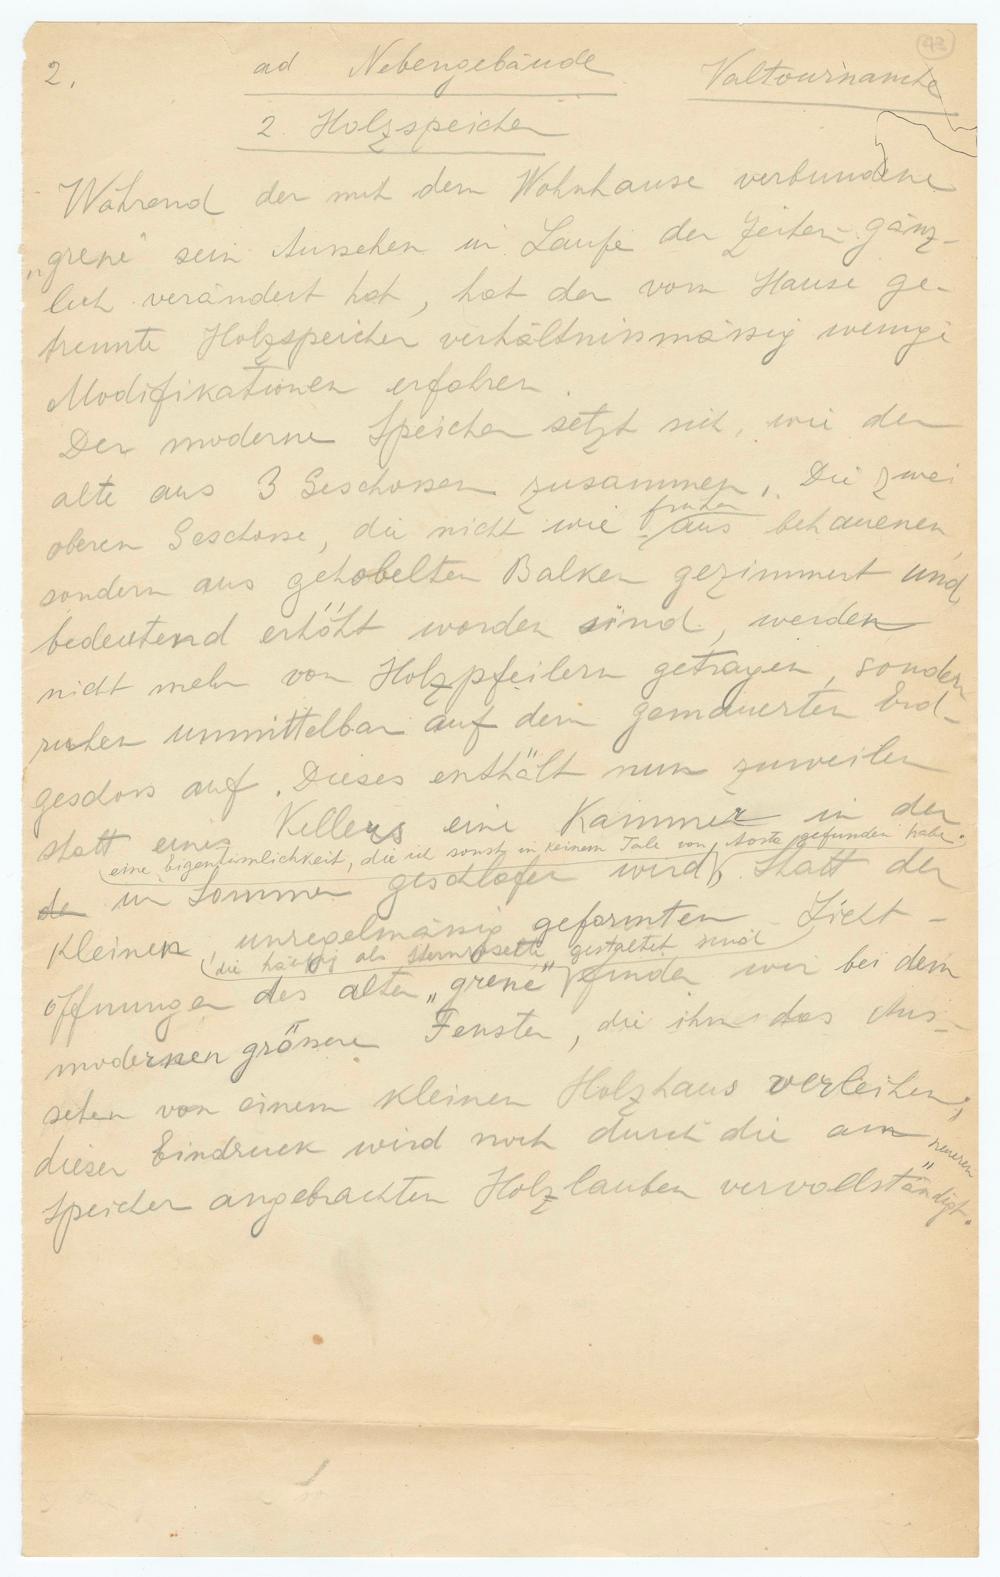 43
2. ad Nebengebäude Valtournanche
2. Holzspeicher
Während der mit dem Wohnhause verbundene
„grenè" sein Aussehen im Laufe der Zeiten gänz-
lich verändert hat, hat der vom Hause ge-
trennte Holzspeicher verhältnismässig wenige
Modifikationen erfahren.
Der moderne Speicher setzt sich, wie der
alte aus 3 Geschossen zusammen. Die zwei
früher
oberen Geschosse, die nicht wie aus behauenen,
sondern aus gehobelten Balken gezimmert und
bedeutend erhöht worden sind, werden
nicht mehr von Holzpfeilern getragen, sondern
ruhen unmittelbar auf dem gemauerten Erd-
gesdoss auf. Dieses enthält nun zuweilen
statt eines Kellers eine Kammer in der
eine Eigentümlichkeit, die ich sonst in keinem Tale von Aosta gefunden habe.
im Sommer geschlafen wird, Statt der
kleinen, unregelmässig geformten Licht-
die häufig als Sternrosette gestaltet sind
öffnungen des alten „grenè" finden wir bei dem
modernen grössere Fenster, die ihm das Aus-
sehen von einem kleinen Holzhaus verleihen;
dieser Eindruck wird noch durch die am neueren
Speicher angebrachten Holzlauben vervollständigt.